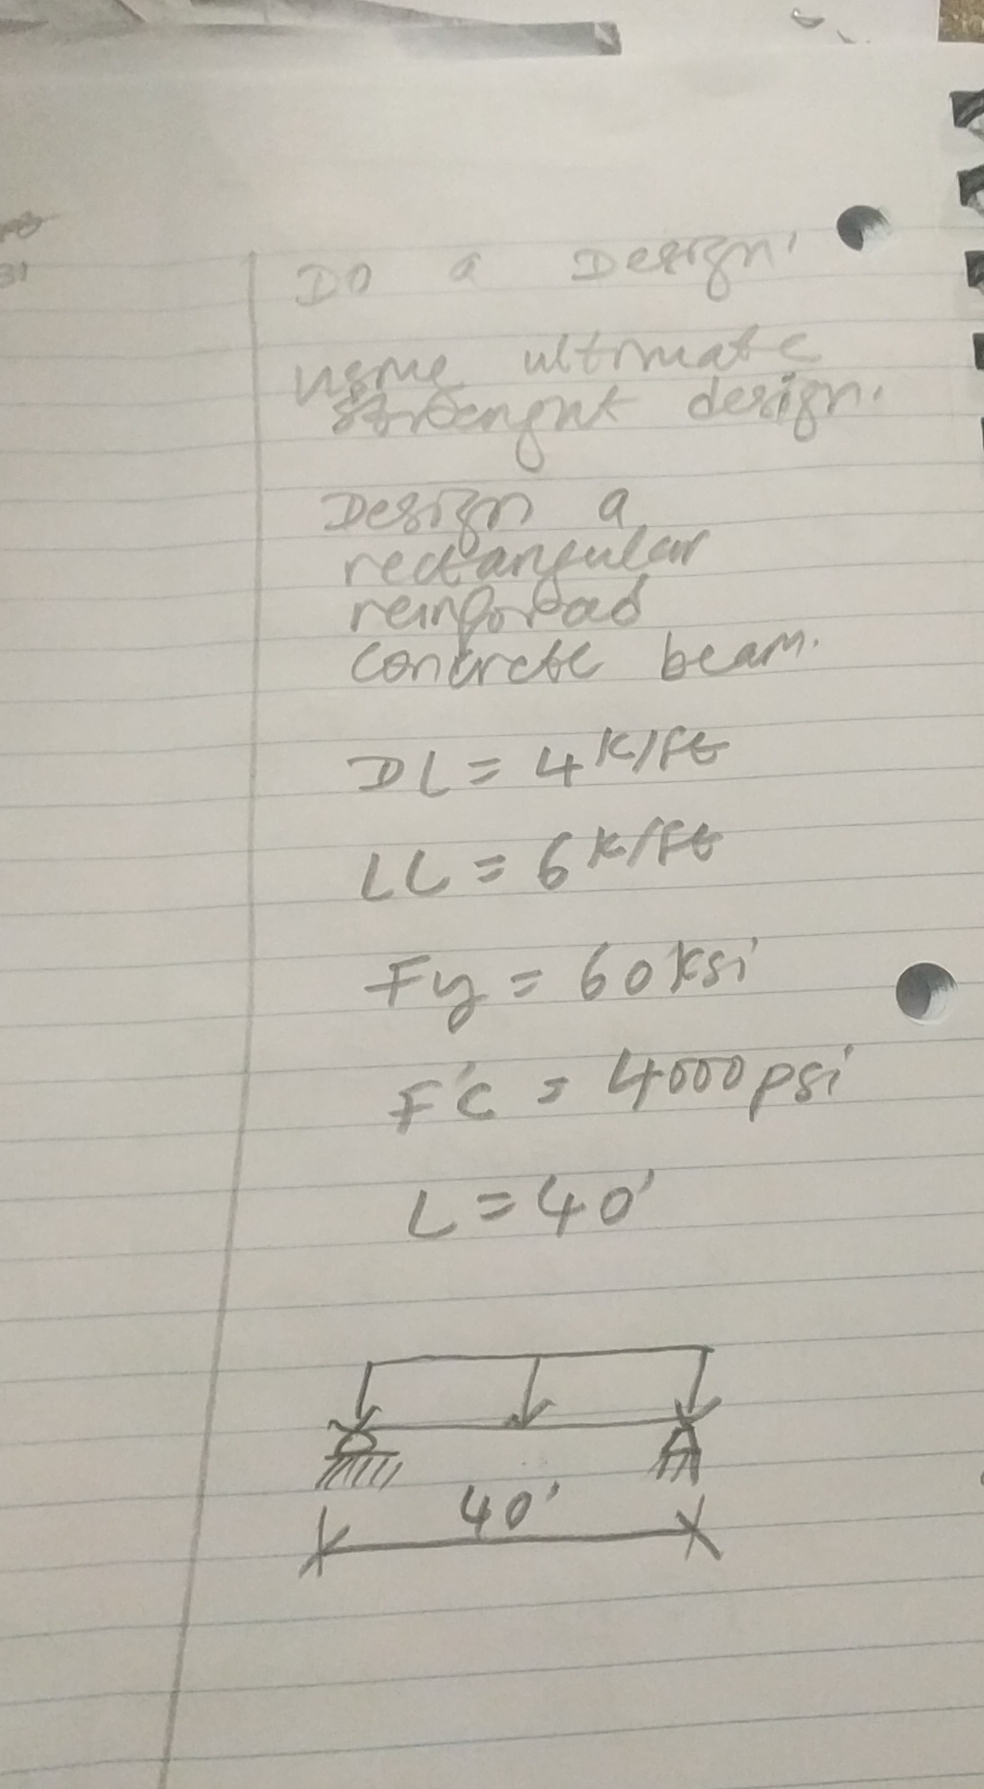 Do a Design.
using ultimate
strenght design.
Design a
rectangular
reinforced
concrete beam.
DL = 4 k/ft
LL = 6 k/ft
Fy = 60 ksi
F'c = 4000 psi
L = 40'
40'